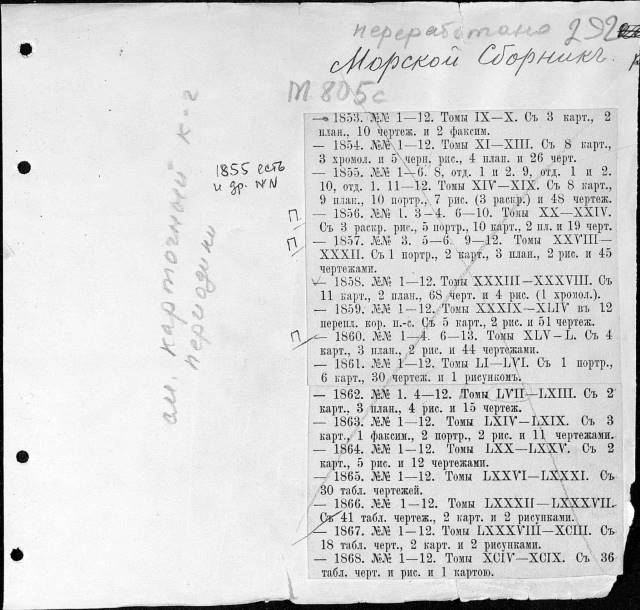 переработано 292
Морской Сборникъ.
М 805с
см. карточный к-г
периодики
1855 есть
и др. №№
П.
П.
П.
— 1853. №№ 1—12. Томы IX—X. Съ 3 карт., 2
план., 10 чертеж. и 2 факсим.
— 1854. №№ 1—12. Томы XI—XIII. Съ 8 карт.,
3 хромол. и 5 черн. рис., 4 план. и 26 черт.
— 1855. №№ 1—6. 8, отд. 1 и 2. 9, отд. 1 и 2.
10, отд. 1. 11—12. Томы XIV—XIX. Съ 8 карт.,
9 план., 10 портр., 7 рис. (3 раскр.) и 48 чертеж.
— 1856. №№ 1. 3—4. 6—10. Томы XX—XXIV.
Съ 3 раскр. рис., 5 портр., 10 карт., 2 пл. и 19 черт.
— 1857. №№ 3. 5—6. 9—12. Томы XXVIII—
XXXII. Съ 1 портр., 2 карт., 3 план., 2 рис. и 45
чертежами.
— 1858. №№ 1—12. Томы XXXIII—XXXVIII. Съ
11 карт., 2 план., 68 черт. и 4 рис. (1 хромол.).
— 1859. №№ 1—12. Томы XXXIX—XLIV въ 12
перепл. кор. п.-с. Съ 5 карт., 2 рис. и 51 чертеж.
— 1860. №№ 1—4. 6—13. Томы XLV—L. Съ 4
карт., 3 план., 2 рис. и 44 чертежами.
— 1861. №№ 1—12. Томы LI—LVI. Съ 1 портр.,
6 карт., 30 чертеж. и 1 рисункомъ.
— 1862. №№ 1. 4—12. Томы LVII—LXIII. Съ 2
карт., 3 план., 4 рис. и 15 чертеж.
— 1863. №№ 1—12. Томы LXIV—LXIX. Съ 3
карт., 1 факсим., 2 портр., 2 рис. и 11 чертежами.
— 1864. №№ 1—12. Томы LXX—LXXV. Съ 2
карт., 5 рис. и 12 чертежами.
— 1865. №№ 1—12. Томы LXXVI—LXXXI. Съ
30 табл. чертежей.
— 1866. №№ 1—12. Томы LXXXII—LXXXVII.
Съ 41 табл. чертеж., 2 карт. и 2 рисунками.
— 1867. №№ 1—12. Томы LXXXVIII—XCIII. Съ
18 табл. черт., 2 карт. и 2 рисунками.
— 1868. №№ 1—12. Томы XCIV—XCIX. Съ 36
табл. черт. и рис. и 1 картою.